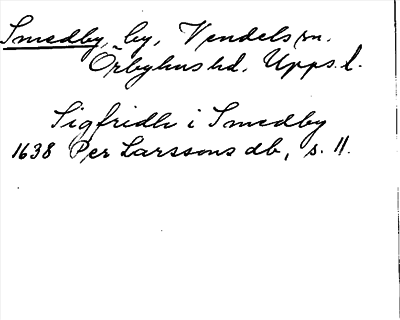 Smedby, by, Vendels sn.
Örbyhus hd. Upps. l.
Sigfridh i Smedby
1638 Per Larssons db, s. 11.